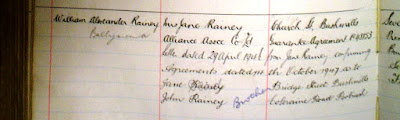 William Alexander Rainey Mrs Jane Rainey Church St. Bushmills
Ballymena Alliance Assce Co Ld Guarantee Agreement
letter dated 29 April 1908 from Jane Rainey confirming
Agreements dated 7th October 1907 as to
Jane Rainey Bridge Street Bushmills
John Rainey Brother Coleraine Road Portrush